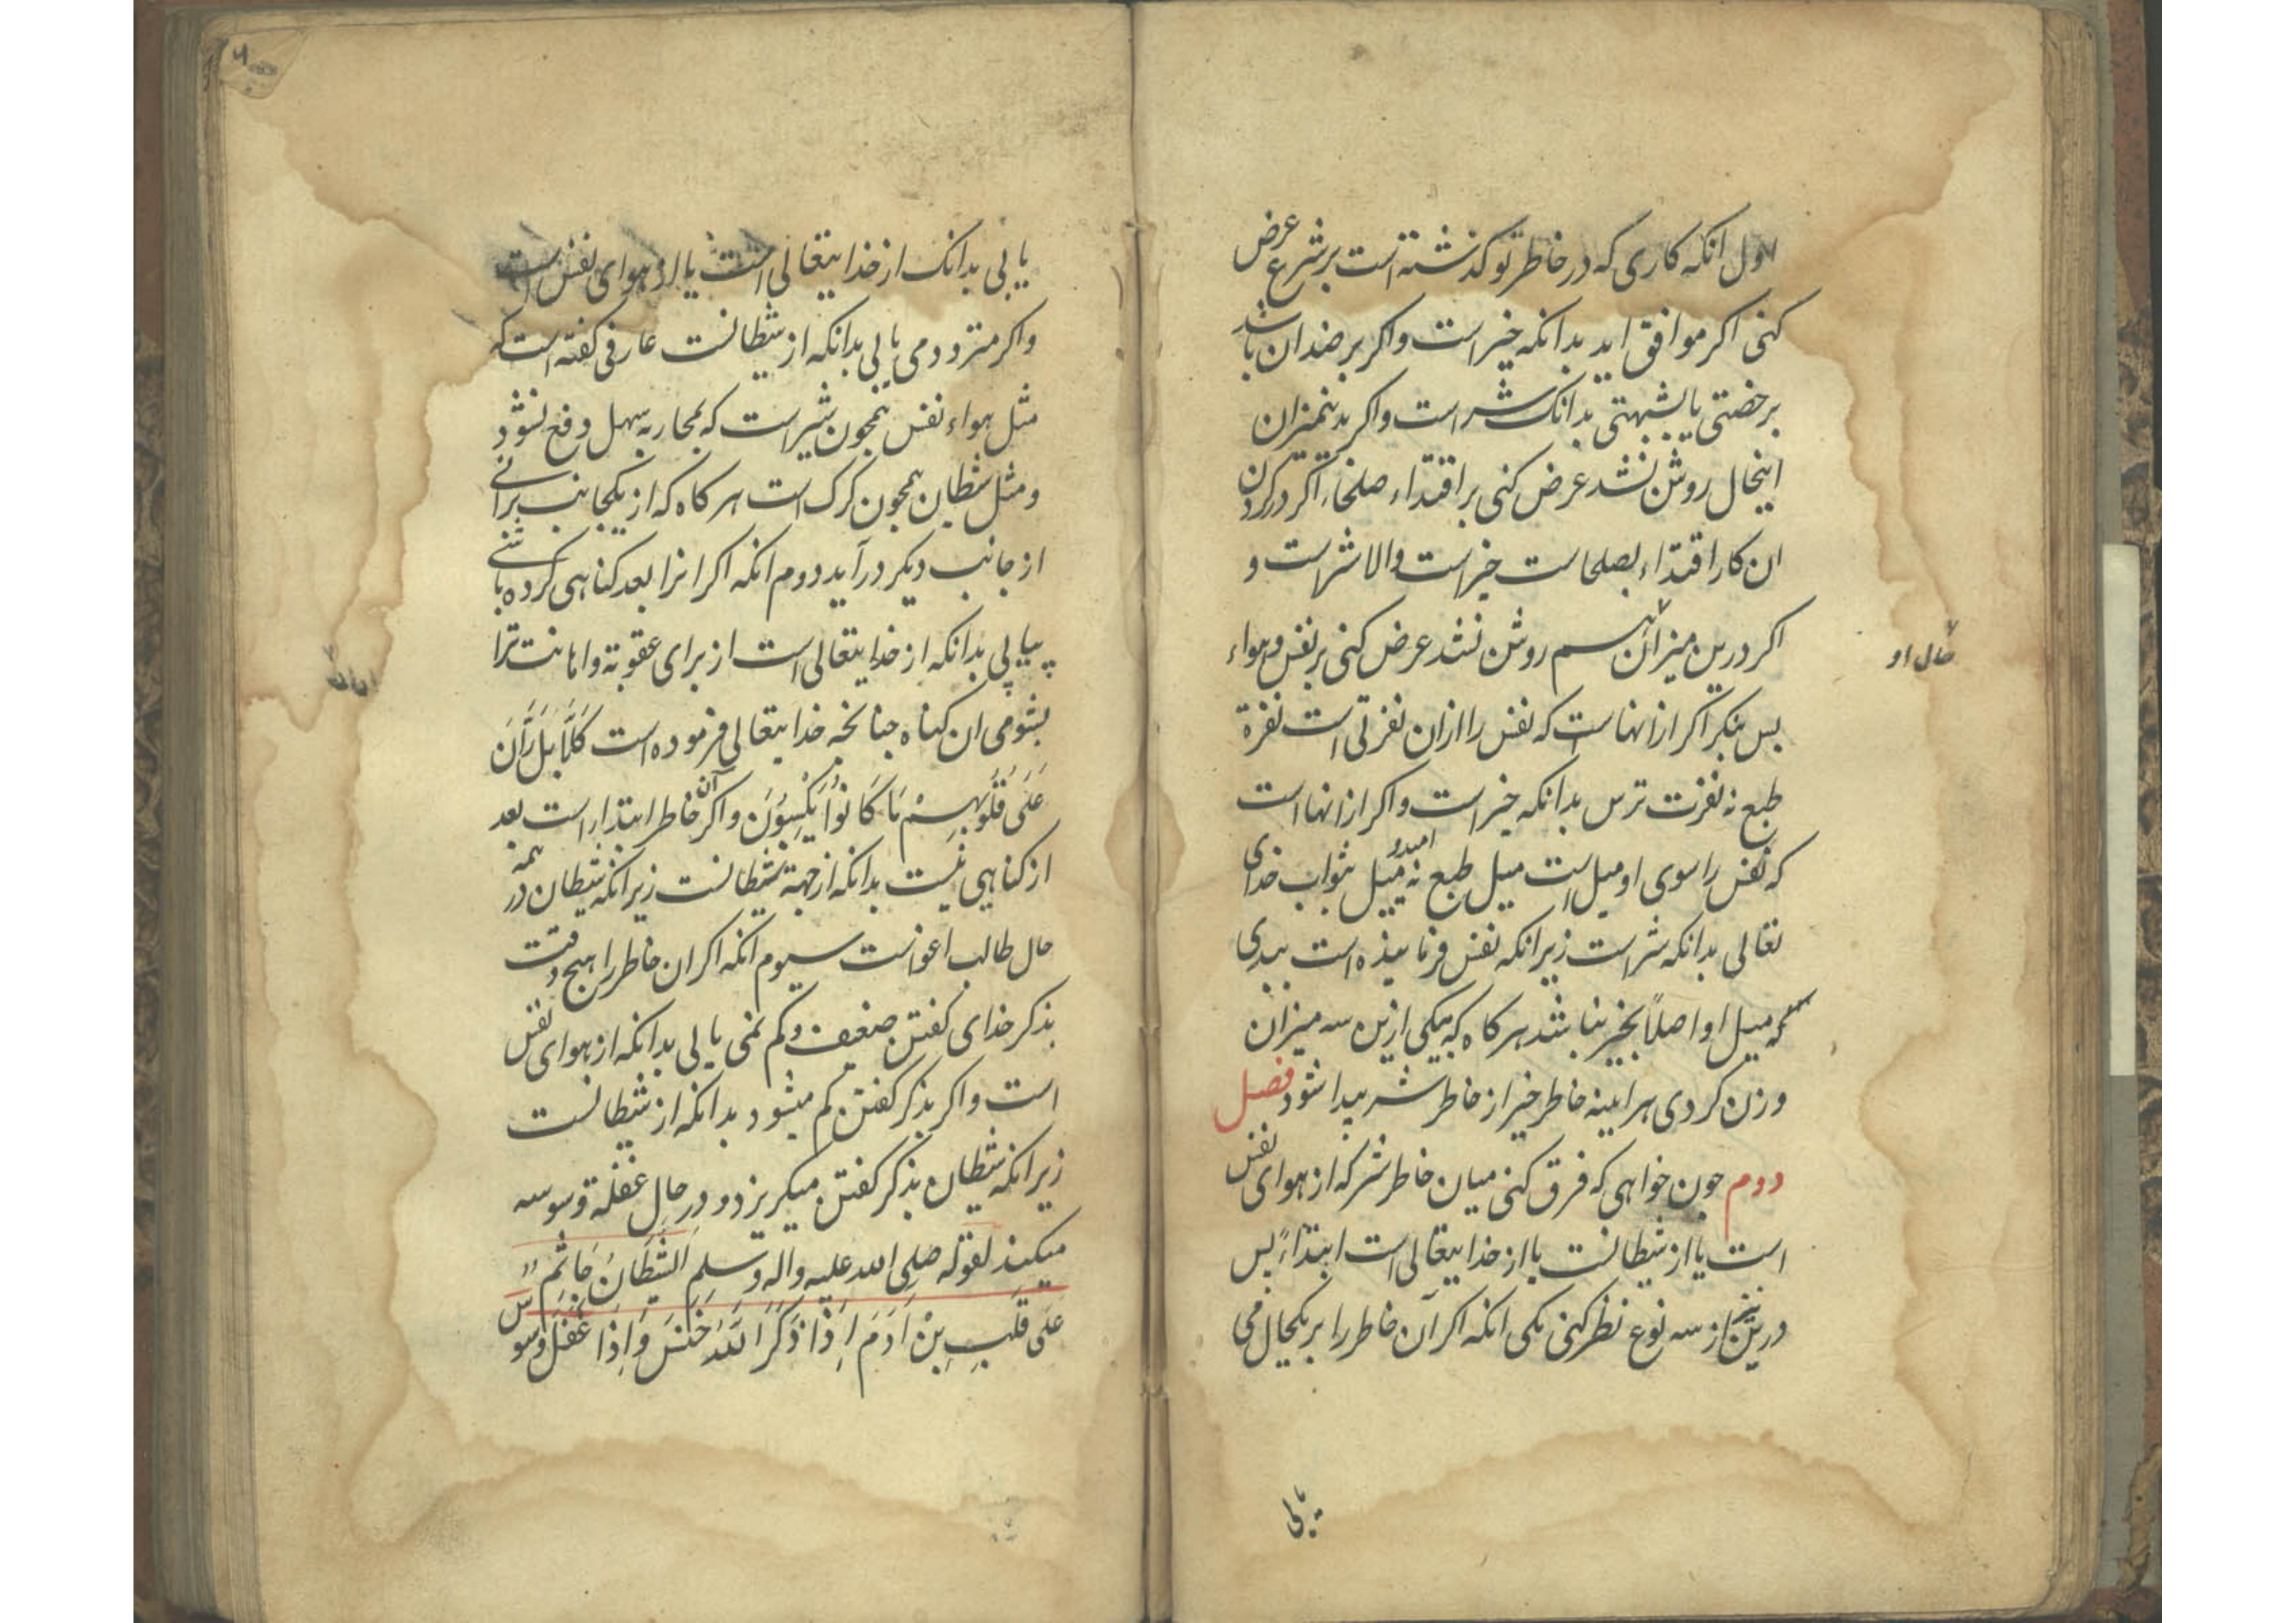 اول انکه کاری که در خاطر تو کذشته است بر شرع عرض
کنی اکر موافق اید بدانکه خیر است واکر بر ضد ان باشد
برخصتی یا بشبهتی بدانک شر است واکر بدینمیزان
اینحال روشن نشد عرض کنی بر اقتداء صلحا، اکر در کردن
ان کار اقتداء بصلحا ست خیر است والا شر است و
اکر درین میزان هم روشن نشد عرض کنی بر نفس و هواء
حال او
بس بنکر اکر از انها است که نفس را ازان نفرتی است نفرة
طبع نه نفرت ترس بدانکه خیر است واکر از انها است
که نفس را سوی او میل است میل طبع نه میل امید و بثواب خدای
تعالی بدانکه شر است زیرانکه نفس فرماینده است ببدی
که میل او اصلاً بخیر نباشد هر کاه که بیکی ازین سه میزان
وزن کردی هراینه خاطر خیر از خاطر شر پیدا شود فصل
دوم جون خواهی که فرق کنی میان خاطر شر که از هوای نفس
است یا از شیطانست یا از خدایتعالی است ابتداءً بس
درین از سه نوع نظر کنی یکی انکه اکر آن خاطر را بر یکحال می
یابی
یابی بدانک از خدایتعالی است یا از هوای نفس است
واکر متردد می یابی بدانکه از شیطانست عارفی کفته است که
مثل هواء نفس همجون شیر است که بمحاربه سهل دفع نشود
ومثل شیطان همجون کرک است هر کاه که از یکجانب برانی
از جانب دیکر درآید دوم انکه اکر انرا بعد کناهی کرده باشی
پیابی بدانکه از خدایتعالی است از برای عقوبة واهانت ترا
بشومی ان کناه جنانجه خدایتعالی فرموده است کَلَّا بَلْ رَانَ
عَلَی قُلُوبِهِمْ مَا کَانُوا یَکْسِبُونَ واکر آن خاطر ابتداء است بعد
از کناهی نیست بدانکه از جهة شیطانست زیرانکه شیطان در همه
حال طالب اغواست سیوم انکه اکر ان خاطر را هیج وقت
بذکر خدای کفتن ضعیف وکم نمی یابی بدانکه از هوای نفس
است واکر بذکر کفتن کم میشود بدانکه از شیطانست
زیرانکه شیطان بذکر کفتن میکریزد و در حال غفلة وسوسه
میکند لقوله صلی الله علیه واله وسلم الشَّیْطَانُ جَاثِمٌ
عَلَی قَلْبِ بْنِ اَدَمَ اِذَا ذَکَرَ اللهَ خَنَسَ وَاِذَا غَفَلَ وَسْوَسَ